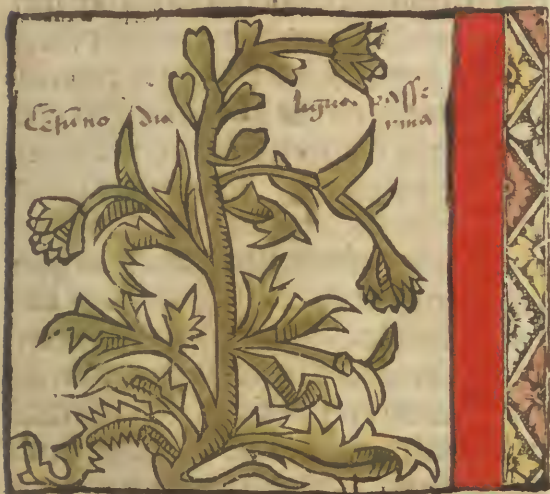 Cētūno dia
ligua passe
rina